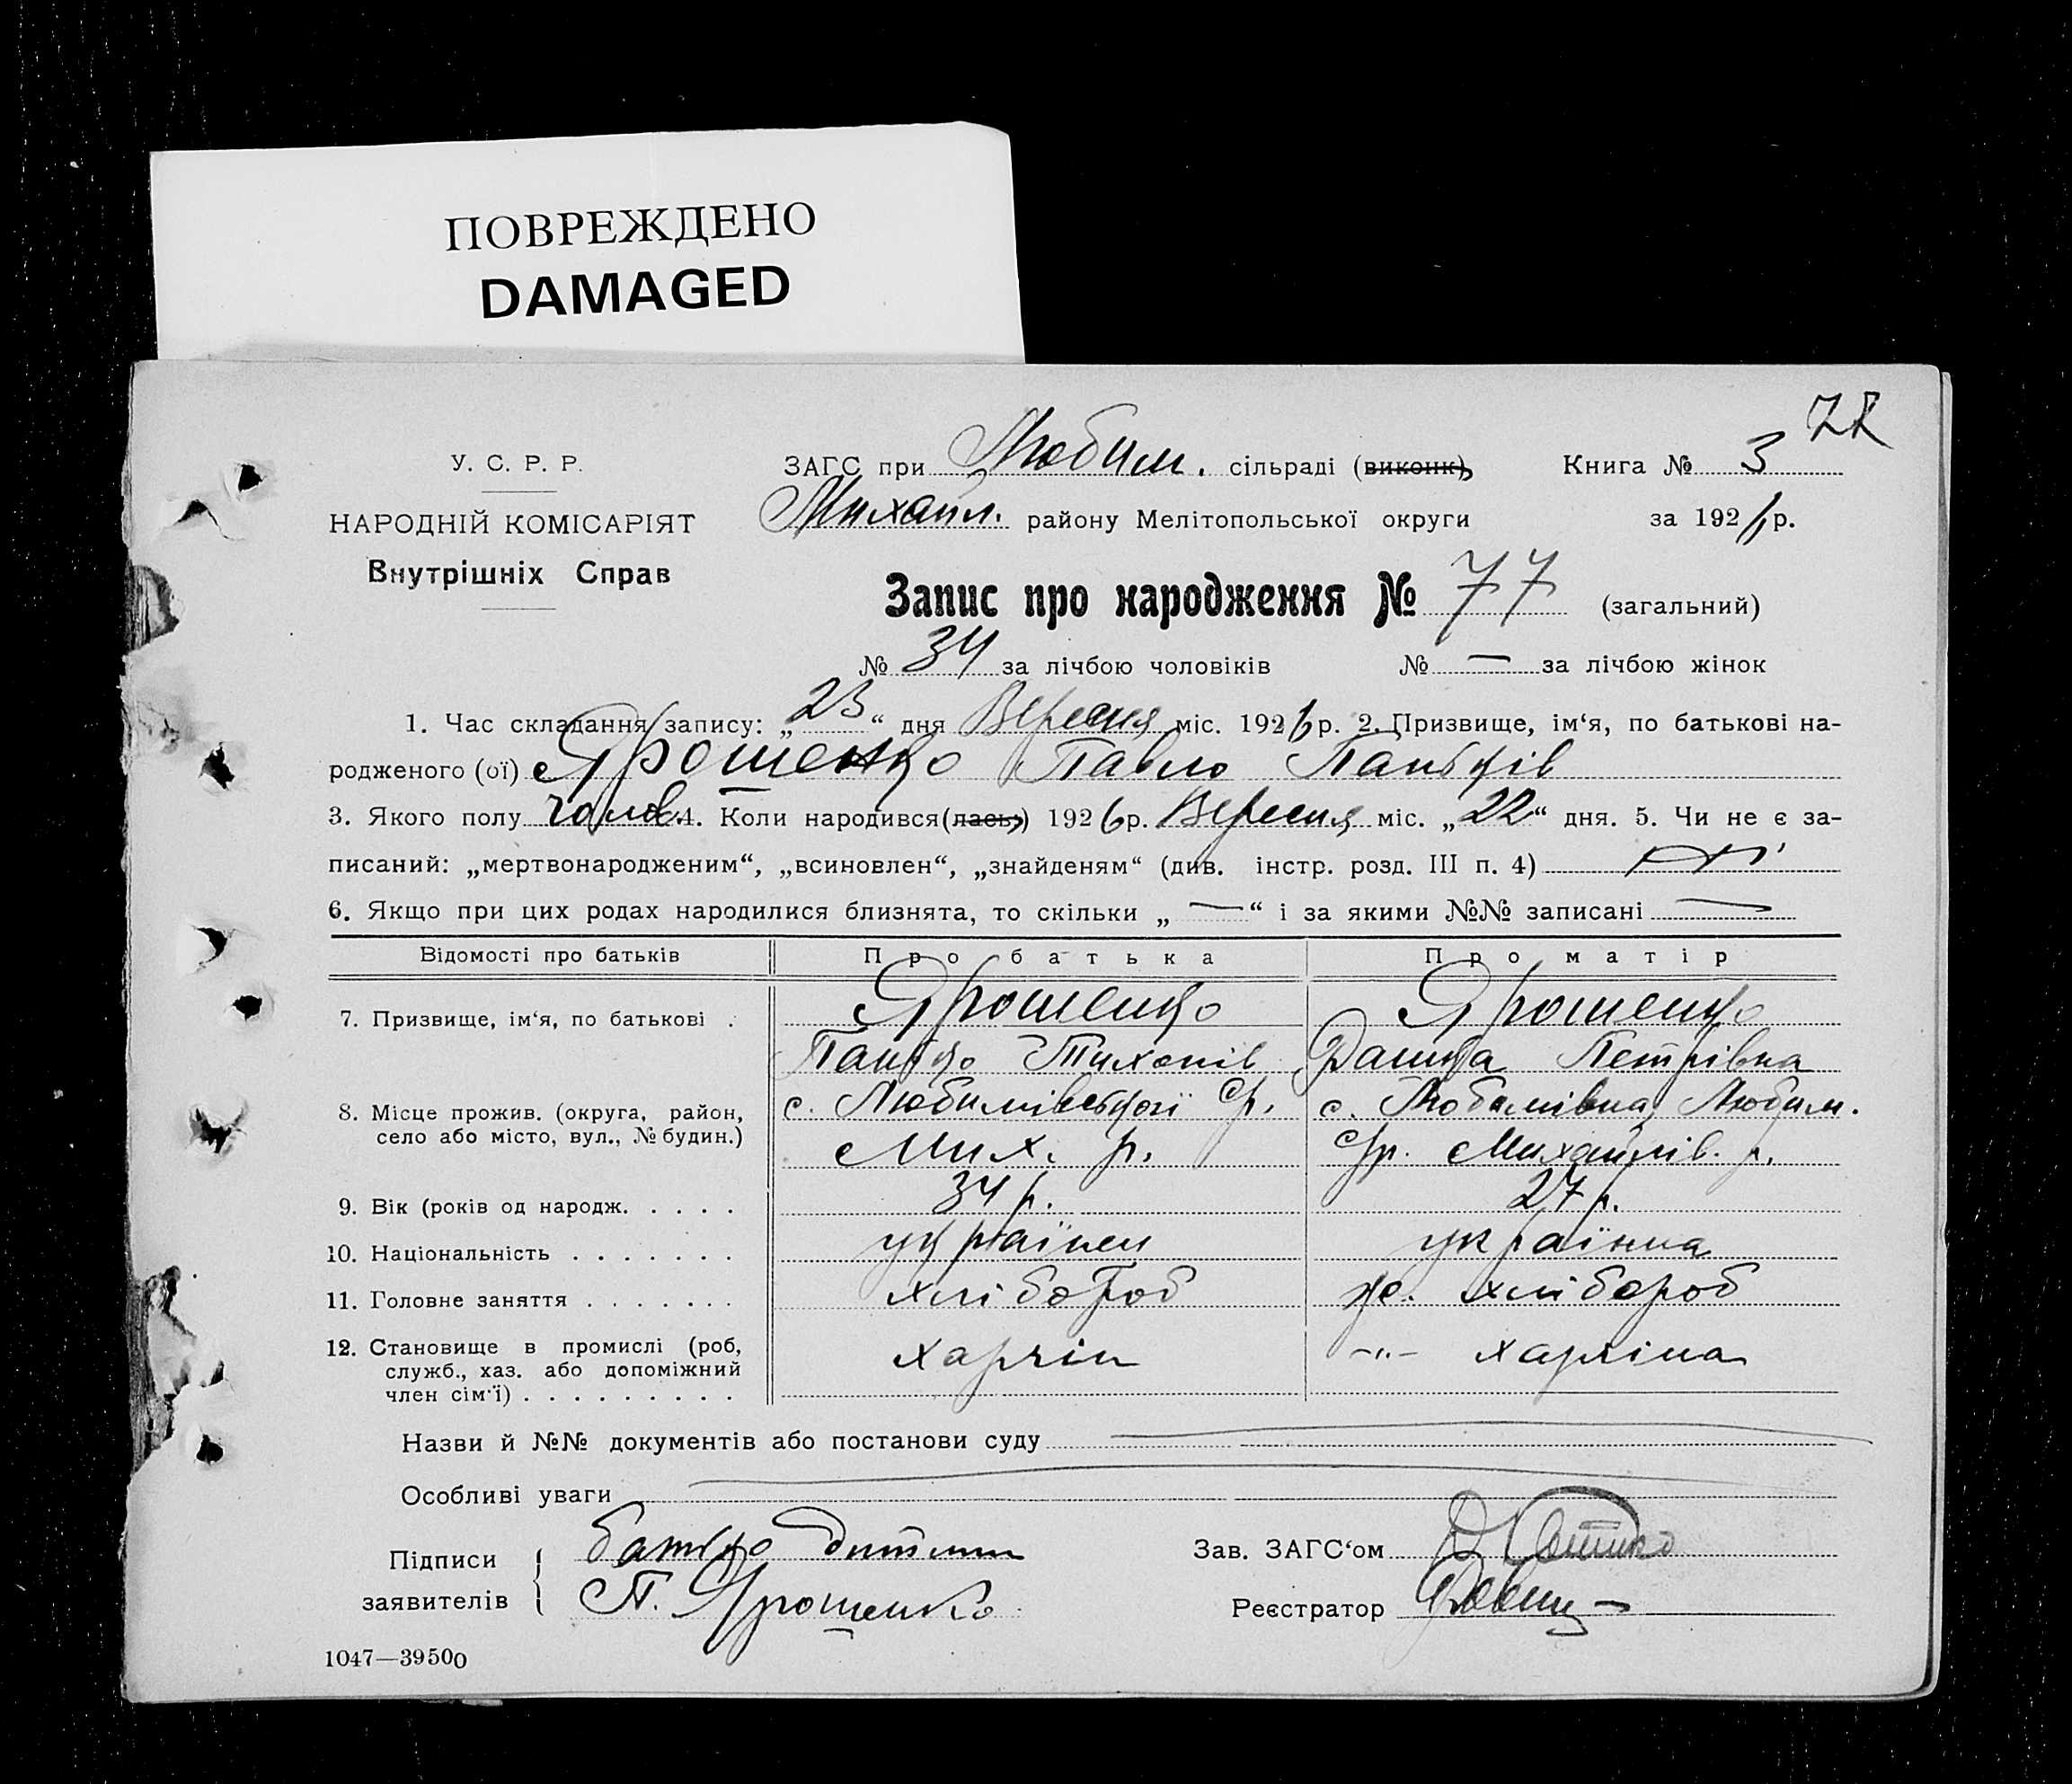 ПОВРЕЖДЕНО
DAMAGED
77
У. С. Р. Р.
ЗАГС при Любим. сільраді (виконк) Книга № 3
НАРОДНІЙ КОМІСАРІЯТ
Михайл. району Мелітопольської округи за 1926 р.
Внутрішніх Справ
Запис про народження № 77 (загальний)
№ 34 за лічбою чоловіків № — за лічбою жінок
1. Час складання запису: „23“ дня Вересня міс. 1926 р. 2. Призвище, ім‘я, по батькові на-
родженого (ої) Ярошенко Павло Паньків
3. Якого полу чолов. 4. Коли народився (лась) 1926 р. Вересня міс. „22“ дня. 5. Чи не є за-
писаний: „мертвонародженим“, „всиновлен“, „знайденям“ (див. інстр. розд. III п. 4) ні
6. Якщо при цих родах народилися близнята, то скільки „—“ і за якими №№ записані —
Відомості про батьків Про батька Про матір
7. Призвище, ім‘я, по батькові . Ярошенко Ярошенко
Панько Тихонів Петрівна
8. Місце прожив. (округа, район, с. Любимівської с/р. с. Любимівка Любим.
село або місто, вул., № будин.) Мих. р. с/р. Михайлів. р.
9. Вік (років од народж. . . . . 34 р. 27 р.
10. Національність . . . . . . . українец українка
11. Головне заняття . . . . . . . хлібороб хлібороб
12. Становище в промислі (роб,
служб., хаз. або допоміжний
член сім‘ї) . . . . . . . . .
Назви й №№ документів або постанови суду
Особливі уваги
Підписи батько дитини Зав. ЗАГС‘ом
заявителів П. Ярошенко Реєстратор
1047—39500